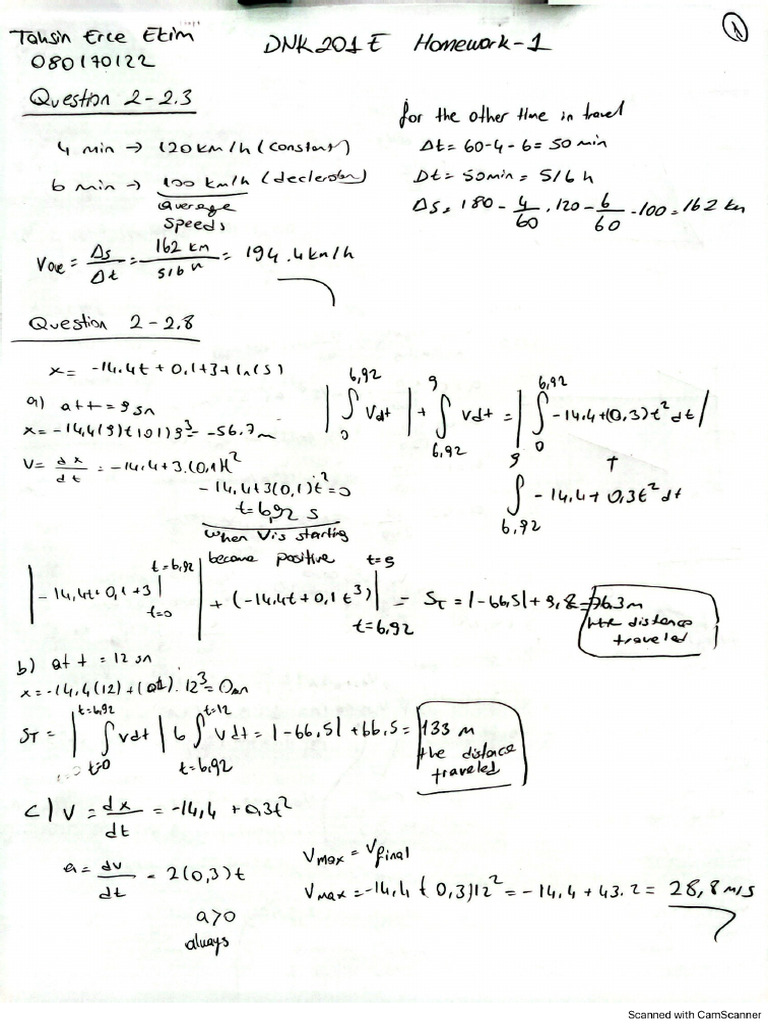 Tahsin Erce Ekim
080170122
DNK201E Homework-1
1
Question 2-2.3
4 min → 120 km/h (constant)
6 min → 100 km/h
average
speeds
Vave = Δs/Δt = 162 km / 5/6 h = 194.4 km/h
for the other time in travel
Δt = 60-4-6 = 50 min
Dt = 50 min = 5/6 h
Δs = 180 - 4/60 . 120 - 6/60 . 100 = 162 km
Question 2-2.8
x = -14.4t + 0,1t3 + ln(s)
a) at t = 9 sn
x = -14,4(9)t(01)9³ = -56.7 m
V = dx/dt = -14.4 + 3.(0,1)t²
-14,4+3(0,1)t² = 0
t = 6,92 s
when V is starting
become positive
|∫₀^6,92 Vdt| + ∫6,92^9 Vdt = |∫₀^6,92 -14,4+(0,3)t² dt|
+
∫6,92^9 -14,4 + 0,3t² dt
|-14,4t + 0,1t3 |t=0 t=6,92| + (-14.4t + 0,1t³)| t=6,92 t=9 = ST = |-66,5| + 9,8 = 76.3 m
the distance
traveled
b) at t = 12 sn
x = -14,4(12) + (01).12³ = 0 m
ST = |∫t=0^t=6,92 Vdt| 6 ∫t=6,92^t=12 Vdt = |-66,5| + 66,5 = 133 m
the distance
traveled
c) V = dx/dt = -14,4 + 0,3t²
a = dv/dt = 2(0,3)t
a>0
always
Vmax = Vfinal
Vmax = -14,4 + 0,3)12² = -14.4 + 43.2 = 28,8 m/s
Scanned with CamScanner